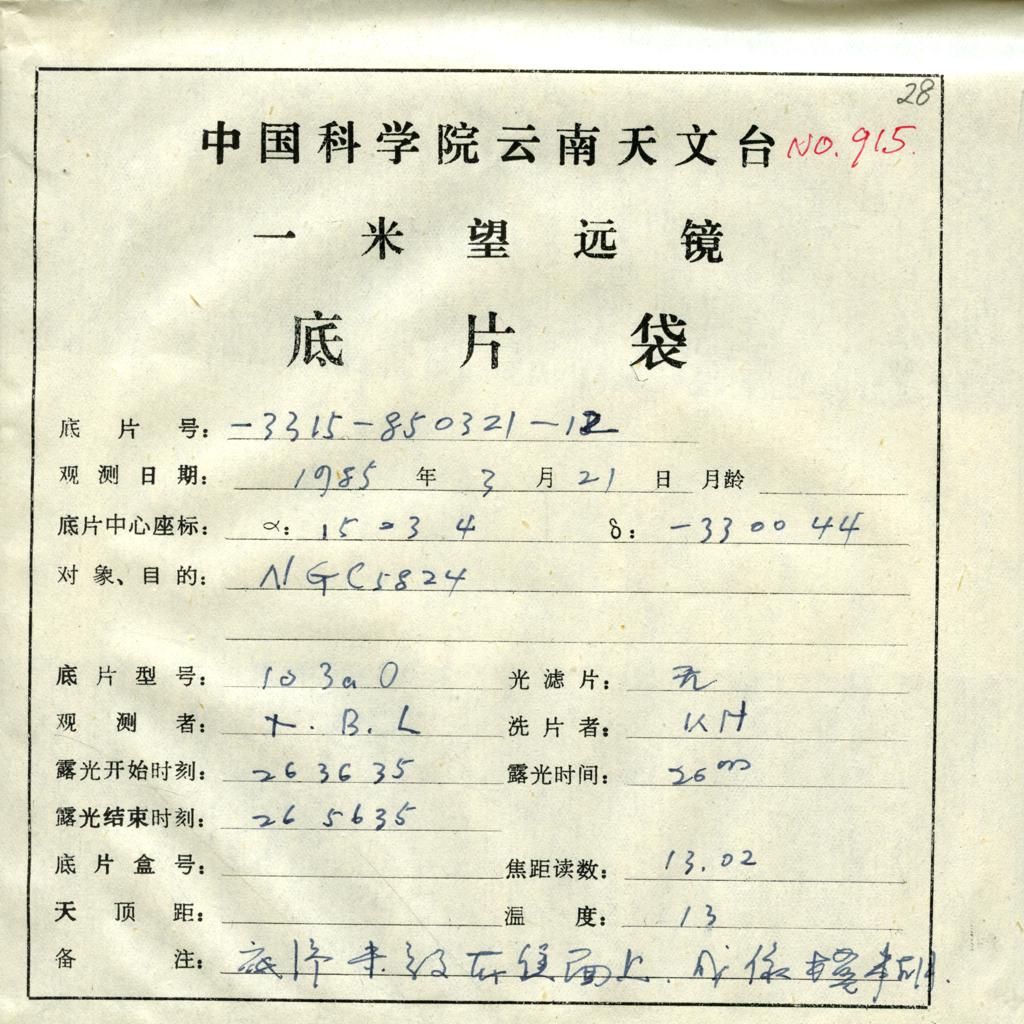 28
中国科学院云南天文台 NO.915.
一米望远镜
底片袋
底片号: -3315-850321-12
观测日期: 1985 年 3 月 21 日 月龄
底片中心座标: α: 15 03 4 δ: -33 00 44
对象、目的: NGC5824
底片型号: 103aO 光滤片: 无
观测者: X.B.L 洗片者: KH
露光开始时刻: 26 36 35 露光时间: 20m
露光结束时刻: 26 56 35
底片盒号: 焦距读数: 13.02
天顶距: 温度: 13
备注: 底片 面上. 成像